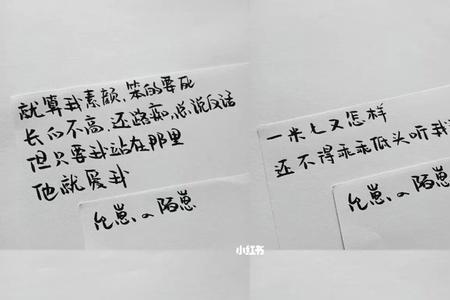 就算我素颜,笨的要死
长的不高,还路痴,总说反话
但只要我站在那里
他就爱我
陌崽
一米七又怎样
还不得乖乖低头听我
陌崽
小红书